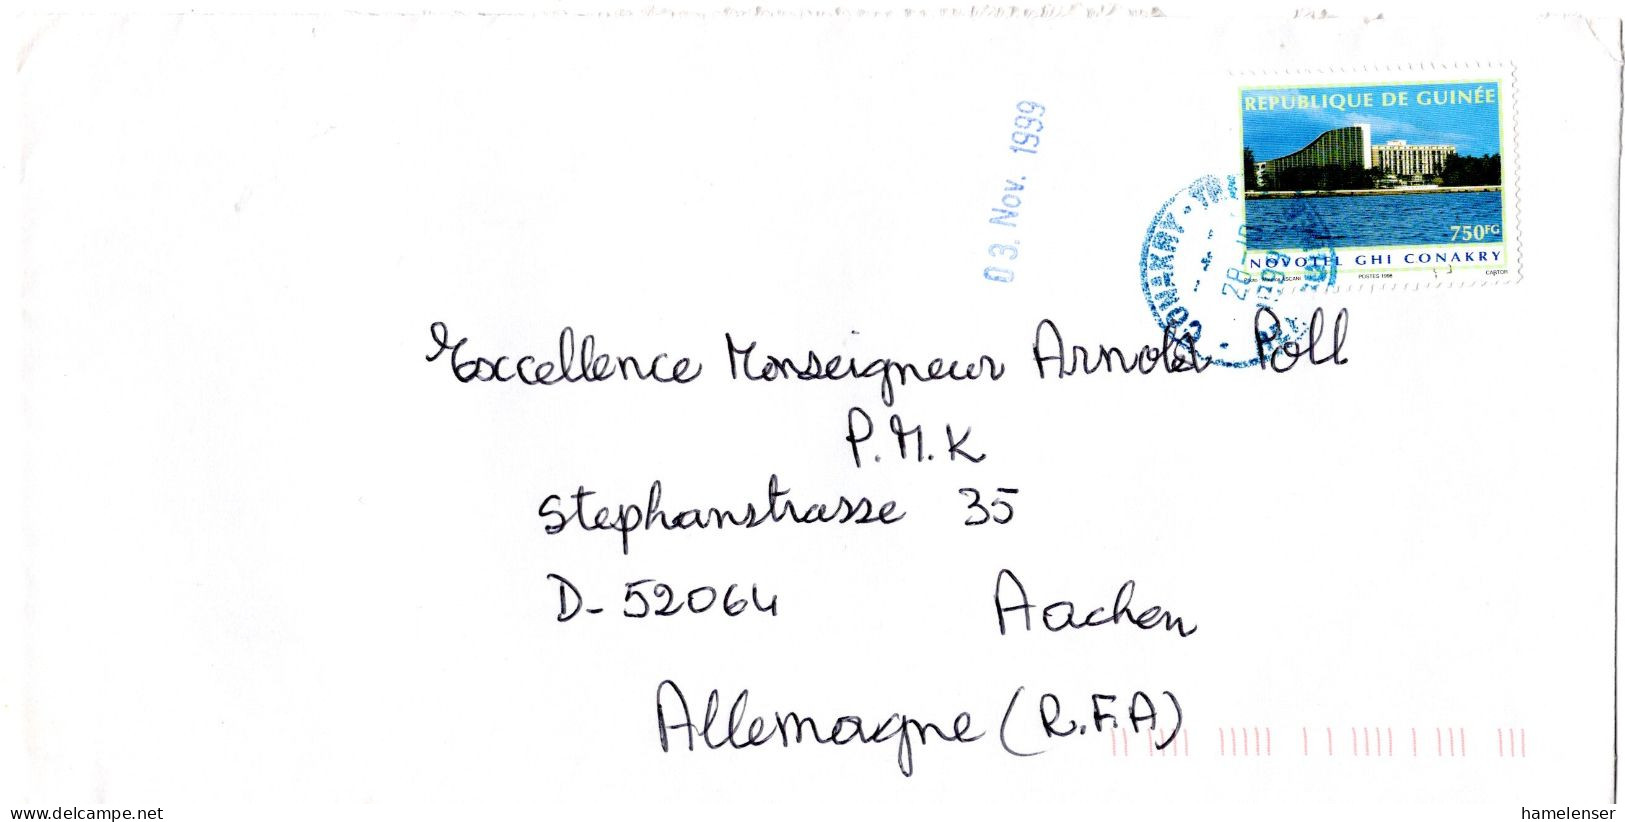 03. Nov. 1999
REPUBLIQUE DE GUINÉE
750FG
NOVOTEL GHI CONAKRY
POSTES 1998
CARTOR
CONAKRY
28-10
1999
Excellence Monseigneur Arnold Poll
P.M.K
Stephanstrasse 35
D-52064 Aachen
Allemagne (R.F.A)
delcampe.net
hamelenser